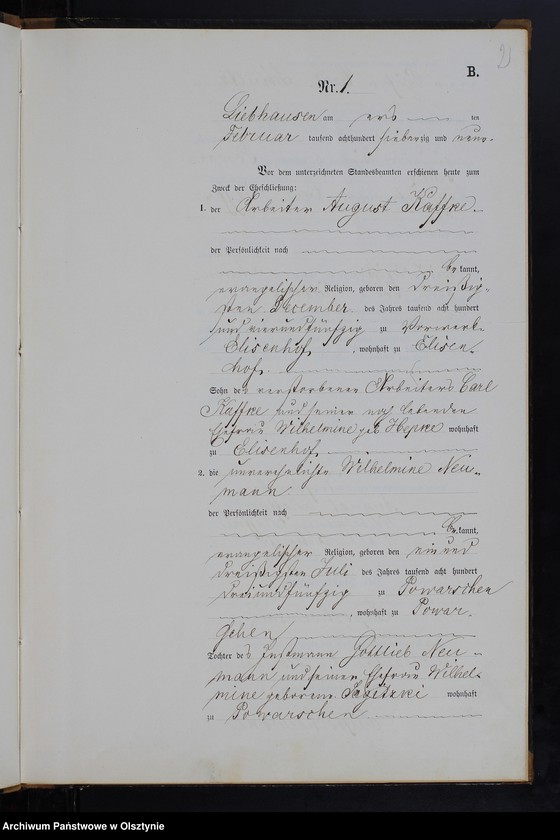 B.
Nr. 1.
Liebhausen am ers ten
Februar tausend achthundert siebenzig und neun
Vor dem unterzeichneten Standesbeamten erschienen heute zum
Zweck der Eheschließung:
1. der Arbeiter August Kaffke
der Persönlichkeit nach
be kannt,
evangelischer Religion, geboren den dreißig-
sten Dezember des Jahres tausend acht hundert
und vierundfünfzig zu Vorwerk
Elisenhof, wohnhaft zu Elisen-
hof
Sohn des verstorbenen Arbeiters Carl
Kaffke und seiner noch lebenden
Ehefrau Wilhelmine geb Hepke wohnhaft
zu Elisenhof
2. die unverehelichte Wilhelmine Neu-
mann
der Persönlichkeit nach
be kannt,
evangelischer Religion, geboren den ein und
dreißigsten Juli des Jahres tausend acht hundert
dreiundfünfzig zu Powarschen
, wohnhaft zu Powar-
schen
Tochter des Instmann Gottlieb Neu-
mann und seiner Ehefrau Wilhel-
mine geborene wohnhaft
zu Powarschen
Archiwum Państwowe w Olsztynie